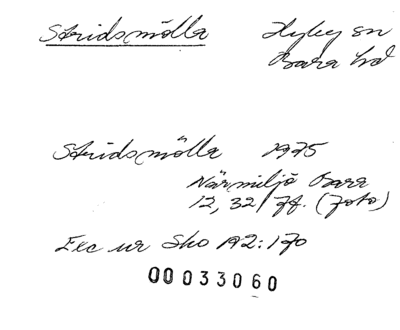 Stridsmölla Hyby sn
Bara hd
Stridsmölla 1975
Närmiljö Bara
12, 32 ff. (foto)
Exc ur Sko 192:170
00033060